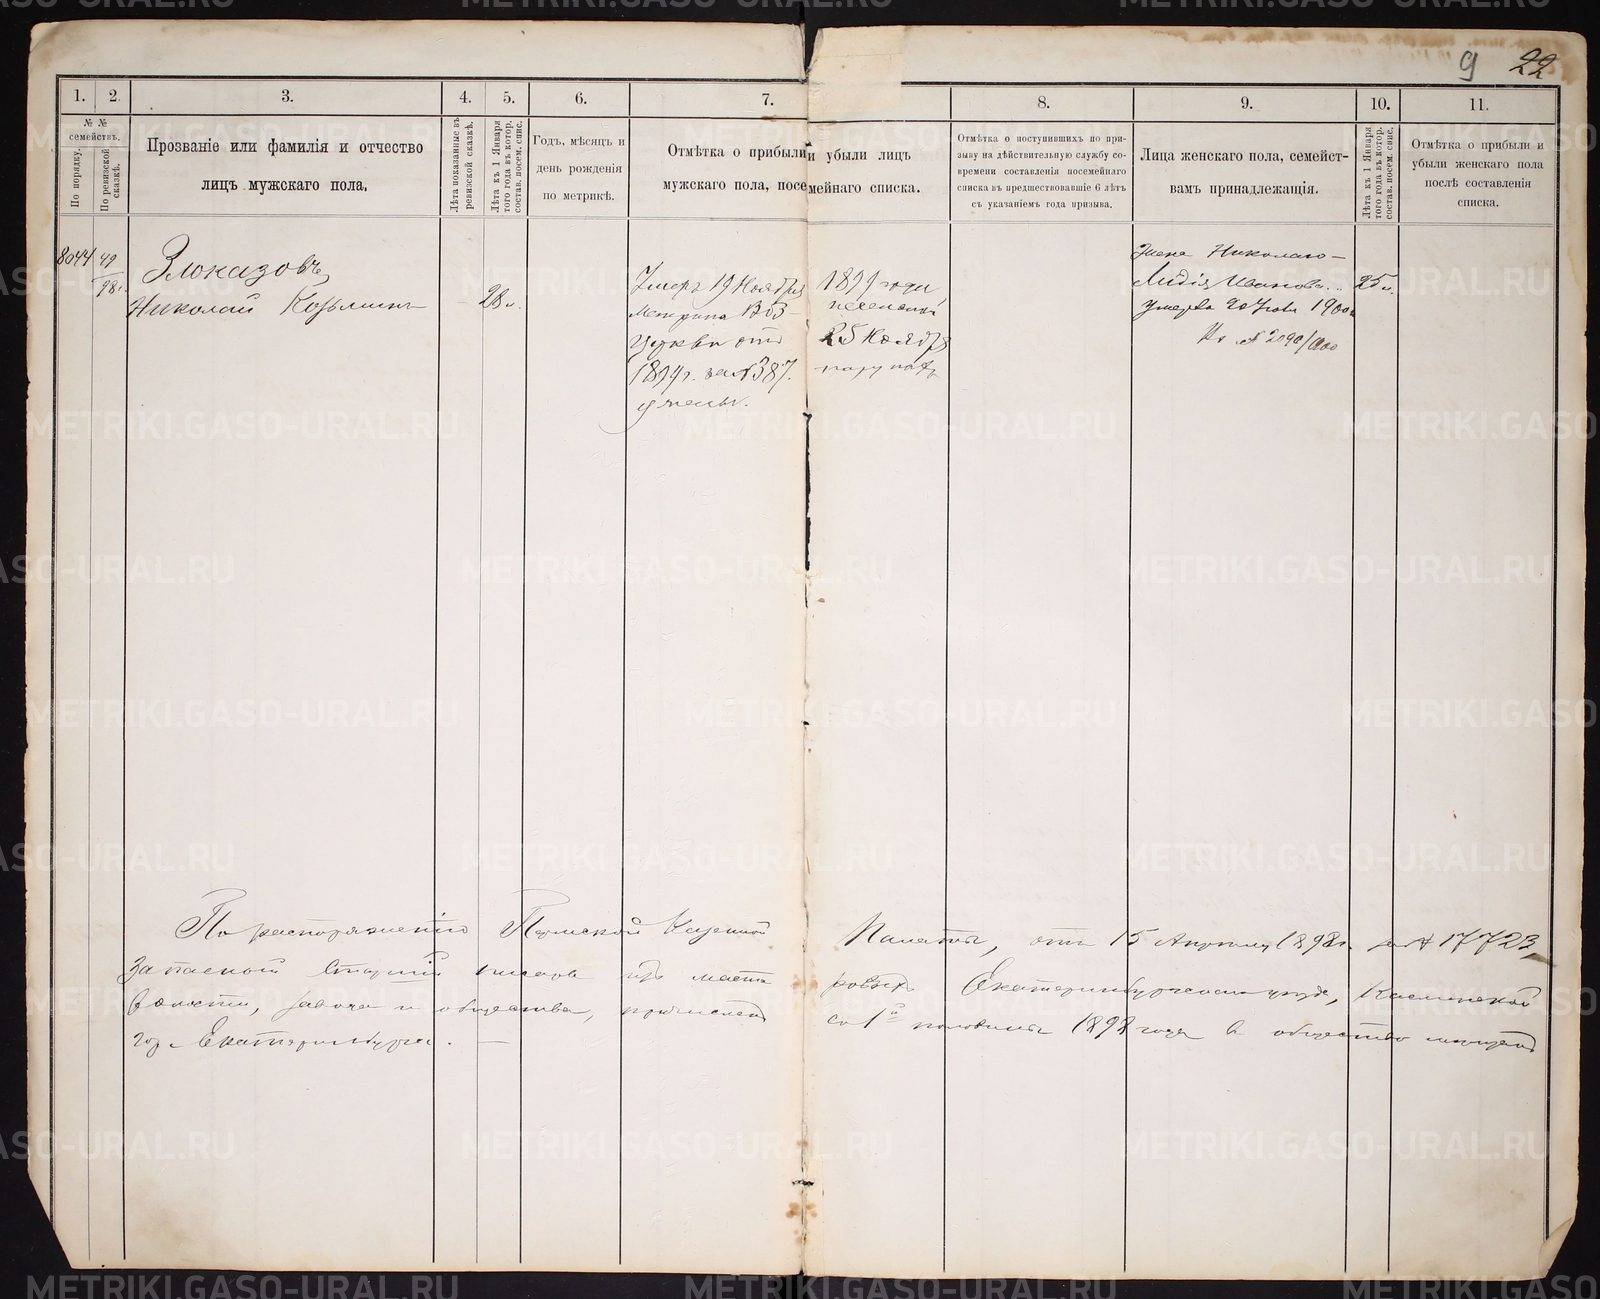 9 22
1. 2. 3. 4. 5. 6. 7. 8. 9. 10. 11.
№ № семействъ.
По порядку.
По ревизской сказкѣ.
Прозваніе или фамилія и отчество
лицъ мужскаго пола.
Лѣта показанные въ
ревизской сказкѣ.
Лѣта къ 1 Января
того года въ котор.
состав. посем. спис.
Годъ, мѣсяцъ и
день рожденія
по метрикѣ.
Отмѣтка о прибыли и убыли лицъ
мужскаго пола, посемейнаго списка.
Отмѣтка о поступившихъ по при-
зыву на дѣйствительную службу со-
времени составленія посемейнаго
списка въ предшествовавшіе 6 лѣтъ
съ указаніемъ года призыва.
Лица женскаго пола, семейст-
вамъ принадлежащія.
Лѣта къ 1 Января
того года въ котор.
состав. посем. спис.
Отмѣтка о прибыли и
убыли женскаго пола
послѣ составленія
списка.
8044 49
98 г.
Злоказовъ
Николай Козьминъ 28 л.
Умеръ 19 Ноября 1899 года
Метрика Воз-
церкви отъ 25 Ноября
189 г. за № 387.
Жена Николаю-
Лидія Иванова 25 л.
умерла 20 1900
№ 2090/900
По распоряженію Пермской Казенной Палаты, отъ 15 Апрѣля 1898 г. за № 17723,
запасной старшій писарь изъ мастеровыхъ Екатеринбургскаго уѣзда, Каслинской
волости, завода и общества, причисленъ со 1й половины 1898 года въ общество мѣщанъ
гор. Екатеринбурга. —